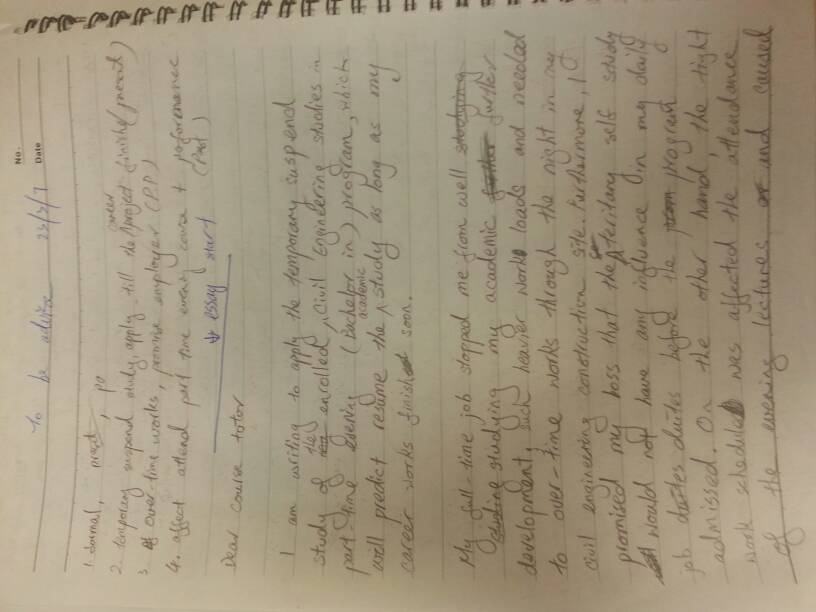 No.
Date
To be advise 23/3/7
1. formal, present, po
2. temporary suspend study, apply till the career project finishe (present)
3. over time works, promise employer (P.P)
4. affect attend part time evening course + performance (Past)
↓ essay start
Dear course totor
I am writing to apply the temporary suspend
study of the enrolled, Civil Engineering studies in
part-time evening (Bachelor in) program, which
will predict resume the academic study as long as my
career works finished soon.
My full-time job stopped me from well studying
studying my academic further
development, such heavier work loads and needed
to over-time works through the night in my
civil engineering construction site. Furthermore, I
promised my boss that the teritary self study
would not have any influence in my daily
job duites duites before the program
admissed. On the other hand the tight
work schedule was affected the attendance
of the evening lectures and caused